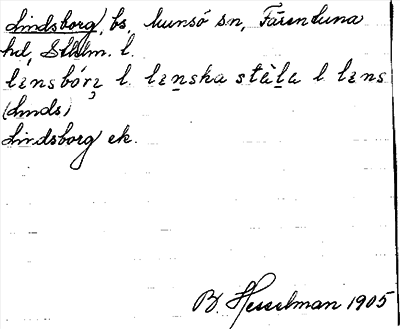 Lindsborg, bs, Munsö sn, Färentuna
hd, Sthlm. l.
lɪnsbórj l. lɪnska stàla l. lɪns
(Linds)
Lindsborg ek.
B. Hesselman 1905